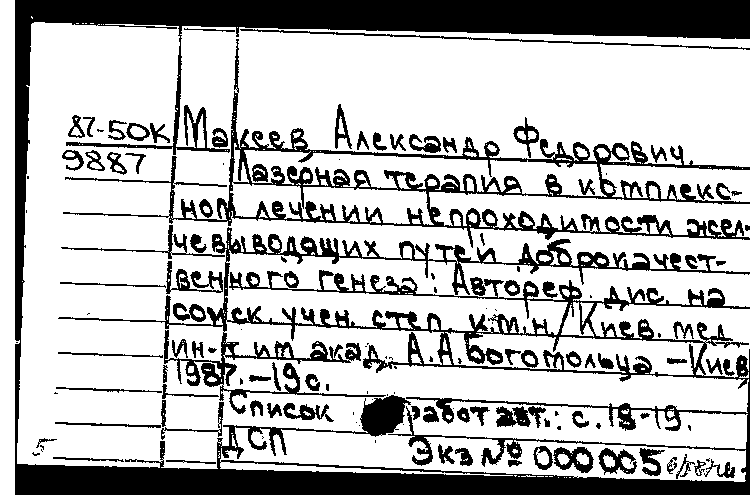 87-50К Макеев, Александр Федорович.
9887 Лазерная терапия в комплекс-
ном лечении непроходимости жел-
чевыводящих путей доброкачест-
венного генеза: Автореф. дис. на
соиск. учен. степ. к.м.н. / Киев. мед.
ин-т им. акад. А.А.Богомольца. —Киев,
1987. —19 с.
Список работ авт.: с. 18-19.
ДСП Экз № 000005
5